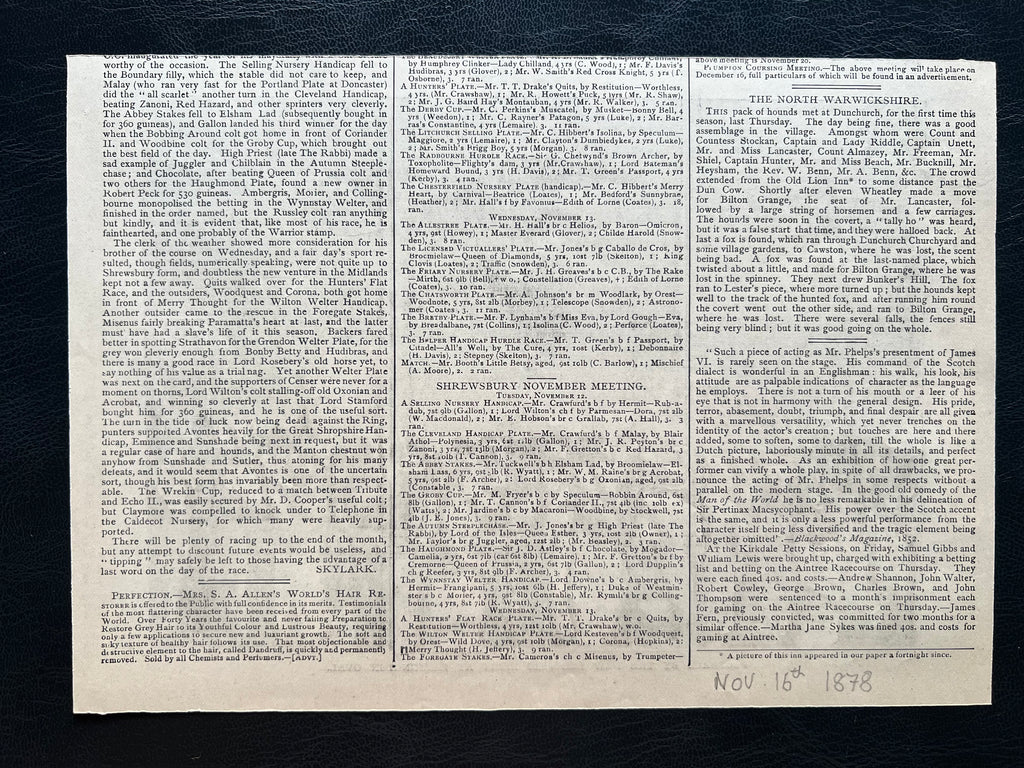 worthy of the occasion. The Selling Nursery Handicap fell to
the Boundary filly, which the stable did not care to keep, and
Malay (who ran very fast for the Portland Plate at Doncaster)
did the "all scarlet" another turn in the Cleveland Handicap,
beating Zanoni, Red Hazard, and other sprinters very cleverly.
The Abbey Stakes fell to Elsham Lad (subsequently bought in
for 360 guineas), and Gallon landed his third winner for the day
when the Bobbing Around colt got home in front of Coriander
II. and Woodbine colt for the Groby Cup, which brought out
the best field of the day. High Priest (late The Rabbi) made a
sad example of Juggler and Chilblain in the Autumn Steeple-
chase; and Chocolate, after beating Queen of Prussia colt and
two others for the Haughmond Plate, found a new owner in
Robert Peck for 530 guineas. Ambergris, Mosier, and Colling-
bourne monopolised the betting in the Wynnstay Welter, and
finished in the order named, but the Russley colt ran anything
but kindly, and it is evident that, like most of his race, he is
fainthearted, and one probably of the Warrior stamp.
The clerk of the weather showed more consideration for his
brother of the course on Wednesday, and a fair day's sport re-
sulted, though fields, numerically speaking, were not quite up to
Shrewsbury form, and doubtless the new venture in the Midlands
kept not a few away. Quits walked over for the Hunters' Flat
Race, and the outsiders, Woodquest and Corona, both got home
in front of Merry Thought for the Wilton Welter Handicap.
Another outsider came to the rescue in the Foregate Stakes,
Misenus fairly breaking Paramatta's heart at last, and the latter
must have had a slave's life of it this season. Backers fared
better in spotting Strathavon for the Grendon Welter Plate, for the
grey won cleverly enough from Bonby Betty and Hudibras, and
there is many a good race in Lord Rosebery's old horse yet, to
say nothing of his value as a trial nag. Yet another Welter Plate
was next on the card, and the supporters of Censer were never for a
moment on thorns, Lord Wilton's colt stalling-off old Oxonian and
Acrobat, and winning so cleverly at last that Lord Stamford
bought him for 360 guineas, and he is one of the useful sort.
The turn in the tide of luck now being dead against the Ring,
punters supported Avontes heavily for the Great Shropshire Han-
dicap, Eminence and Sunshade being next in request, but it was
a regular case of hare and hounds, and the Manton chestnut won
anyhow from Sunshade and Sutler, thus atoning for his many
defeats, and it would seem that Avontes is one of the uncertain
sort, though his best form has invariably been more than respect-
able. The Wrekin Cup, reduced to a match between Tribute
and Echo II., was easily secured by Mr. D. Cooper's useful colt;
but Claymore was compelled to knock under to Telephone in
the Caldecot Nursery, for which many were heavily sup-
ported.
There will be plenty of racing up to the end of the month,
but any attempt to discount future events would be useless, and
"tipping" may safely be left to those having the advantage of a
last word on the day of the race. SKYLARK.
PERFECTION.—MRS. S. A. ALLEN'S WORLD'S HAIR RE-
STORER is offered to the Public with full confidence in its merits. Testimonials
of the most flattering character have been received from every part of the
World. Over Forty Years the favourite and never failing Preparation to
Restore Grey Hair to its Youthful Colour and Lustrous Beauty, requiring
only a few applications to secure new and luxuriant growth. The soft and
silky texture of healthy hair follows its use. That most objectionable and
destructive element to the hair, called Dandruff, is quickly and permanently
removed. Sold by all Chemists and Perfumers.—[ADVT.]
by Humphrey Clinker—Lady Chilland, 4 yrs (C. Wood), 1; Mr. F. Davis's
Hudibras, 3 yrs (Glover), 2; Mr. W. Smith's Red Cross Knight, 5 yrs (T.
Osborne), 3. 7 ran.
A HUNTERS' PLATE.—Mr. T. T. Drake's Quits, by Restitution—Worthless,
4 yrs, (Mr. Crawshaw), 1; Mr. R. Howett's Puck, 5 yrs (Mr. R. Shaw),
2; Mr. J. G. Baird Hay's Montauban, 4 yrs (Mr. R. Walker), 3. 5 ran.
The DERBY CUP.—Mr. C. Perkins's Muscatel, by Musket—bonny Bell, 4
yrs (Weedon), 1; Mr. C. Rayner's Patagon, 5 yrs (Luke), 2; Mr. Bar-
ras's Constantine, 4 yrs (Lemaire), 3. 11 ran.
The LITCHURCH SELLING PLATE.—Mr. C. Hibbert's Isolina, by Speculum—
Maggiore, 2 yrs (Lemaire), 1; Mr. Clayton's Dumbiedykes, 2 yrs (Luke),
2; Mr. Smith's Brigg Boy, 5 yrs (Morgan), 3. 8 ran.
The RADBOURNE HURDLE RACE.—Sir G. Chetwynd's Brown Archer, by
Toxopholite—Flighty's dam, 3 yrs (Mr. Crawshaw), 1; Lord Bateman's
Homeward Bound, 3 yrs (H. Davis), 2; Mr. T. Green's Passport, 4 yrs
(Kerby), 3. 4 ran.
The CHESTERFIELD NURSERY PLATE (handicap).—Mr. C. Hibbert's Merry
Heart, by Carnival—Beatrice (Loates), 1; Mr. Bedford's Sunnybrae,
(Heather), 2; Mr. Hall's f by Favonus—Edith of Lorne (Coates), 3. 18,
ran.
WEDNESDAY, NOVEMBER 13.
The ALLESTREE PLATE.—Mr. H. Hall's br c Helios, by Baron—Omicron,
4 yrs, 9st (Howey), 1; Master Everard (Glover), 2; Childe Harold (Snow-
den), 3. 8 ran.
The LICENSED VICTUALLERS' PLATE.—Mr. Jones's b g Caballo de Cros, by
Brocmielaw—Queen of Diamonds, 5 yrs, 10st 7lb (Skelton), 1; King
Clovis (Loates), 2; Traffic (Snowden), 3. 6 ran.
The FRIARY NURSERY PLATE.—Mr. J. H. Greaves's b c C.B., by The Rake
—Mirth, 6st 10lb (Bell), + w o.; Constellation (Greaves), + ; Edith of Lorne
(Coates), 3. 10 ran.
The CHATSWORTH PLATE.—Mr. A. Johnson's br m Woodlark, by Orest—
Woodnote, 5 yrs, 8st 2lb (Morbey), 1; Telescope (Snowden), 2; Astrono-
mer (Coates), 3. 11 ran.
The BRETBY PLATE.—Mr. F. Lynham's b f Miss Eva, by Lord Gough—Eva,
by Breadalbane, 7st (Collins), 1; Isolina (C. Wood), 2; Perforce (Loates),
3. 7 ran.
The BELPER HANDICAP HURDLE RACE.—Mr. T. Green's b f Passport, by
Citadel—All's Well, by The Cure, 4 yrs, 10st (Kerby), 1; Debonnaire
(H. Davis), 2; Stepney (Skelton), 3. 7 ran.
MATCH.—Mr. Boott's Little Betsy, aged, 9st 10lb (C. Barlow), 1; Mischief
(A. Moore), 2. 2 ran.
SHREWSBURY NOVEMBER MEETING.
TUESDAY, NOVEMBER 12.
A SELLING NURSERY HANDICAP.—Mr. Crawfurd's b f by Hermit—Rub-a-
dub, 7st 0lb (Gallon), 1; Lord Wilton's ch f by Parmesan—Dora, 7st 2lb
(W. Macdonald), 2; Mr. E. Hobson's br c Grallah, 7st (A. Hall), 3. 3
ran.
The CLEVELAND HANDICAP PLATE.—Mr. Crawfurd's b f Malay, by Blair
Athol—Polynesia, 3 yrs, 6st 11lb (Gallon), 1; Mr. J. R. Peyton's br c
Zanoni, 3 yrs, 7st 13lb (Morgan), 2; Mr. F. Gretton's b c Red Hazard, 3
yrs, 8st 10lb (T. Cannon), 3. 9 ran.
The ABBEY STAKES.—Mr. Tuckwell's b h Elsham Lad, by Broomielaw—El-
sham Lass, 6 yrs, 9st 3lb (R. Wyatt), 1; Mr. W. M. Raine's br g Acrobat,
5 yrs, 9st 2lb (F. Archer), 2; Lord Rosebery's b g Oxonian, aged, 9st 2lb
(Constable), 3. 7 ran.
The GROBY CUP.—Mr. M. Fryer's b c by Speculum—Robbin Around, 6st
8lb (Gallon), 1; Mr. T. Cannon's b f Coriander II., 7st 4lb (inc 10lb ex)
(Watts), 2; Mr. Jardine's b c by Macaroni—Woodbine, by Stockwell, 7st
4lb (J. E. Jones), 3. 9 ran.
The AUTUMN STEEPLECHASE.—Mr. J. Jones's br g High Priest (late The
Rabbi), by Lord of the Isles—Queen Esther, 3 yrs, 10st 2lb (Owner), 1;
Mr. Taylor's br g Juggler, aged, 12st 2lb; (Mr. Beasley), 2. 3 ran.
The HAUGHMOND PLATE.—Sir J. D. Astley's b f Chocolate, by Mogador—
Camelia, 2 yrs, 6st 7lb (car 6st 8lb) (Lemaire), 1; Mr. F. Gretton's bc f by
Cremorne—Queen of Prussia, 2 yrs, 6st 7lb (Gallon), 2; Lord Dupplin's
ch g Reefer, 3 yrs, 8st 9lb (F. Archer), 3. 4 ran.
The WYNNSTAY WELTER HANDICAP.—Lord Downe's b c Ambergris, by
Hermit—Frangipani, 5 yrs, 10st 6lb (H. Jeffery), 1; Duke of Westmin-
ster's b c Morier, 4 yrs, 9st 8lb (Constable), 2; Mr. Rymill's br g Colling-
bourne, 4 yrs, 8st 7lb (R. Wyatt), 3. 7 ran.
WEDNESDAY, NOVEMBER 13.
A HUNTERS' FLAT RACE PLATE.—Mr. T. T. Drake's br c Quits, by
Restitution—Worthless, 4 yrs, 12st 10lb (Mr. Crawshaw), w.o.
The WILTON WELTER HANDICAP PLATE.—Lord Kesteven's b f Woodquest,
by Orest—Wild Dove, 4 yrs, 9st 10lb (Morgan), 1; Corona, (Hopkins), 2;
Merry Thought (H. Jeffery), 3. 9 ran.
The FOREGATE STAKES.—Mr. Cameron's ch c Misenus, by Trumpeter—
above meeting is November 20.
PLUMPTON COURSING MEETING.—The above meeting will take place on
December 16, full particulars of which will be found in an advertisement.
THE NORTH WARWICKSHIRE.
THIS pack of hounds met at Dunchurch, for the first time this
season, last Thursday. The day being fine, there was a good
assemblage in the village. Amongst whom were Count and
Countess Stockan, Captain and Lady Riddle, Captain Unett,
Mr. and Miss Lancaster, Count Almazey, Mr. Freeman, Mr.
Shiel, Captain Hunter, Mr. and Miss Beach, Mr. Bucknill, Mr.
Heysham, the Rev. W. Benn, Mr. A. Benn, &c. The crowd
extended from the Old Lion Inn* to some distance past the
Dun Cow. Shortly after eleven Wheatley made a move
for Bilton Grange, the seat of Mr. Lancaster, fol-
lowed by a large string of horsemen and a few carriages.
The hounds were soon in the covert, a "tally ho" was heard,
but it was a false start that time, and they were halloed back. At
last a fox is found, which ran through Dunchurch Churchyard and
some village gardens, to Cawston, where he was lost, the scent
being bad. A fox was found at the last-named place, which
twisted about a little, and made for Bilton Grange, where he was
lost in the spinney. They next drew Bunker's Hill, The fox
ran to Lester's piece, where more turned up; but the hounds kept
well to the track of the hunted fox, and after running him round
the covert went out the other side, and ran to Bilton Grange,
where he was lost. There were several falls, the fences still
being very blind; but it was good going on the whole.
"Such a piece of acting as Mr. Phelps's presentment of James
VI. is rarely seen on the stage. His command of the Scotch
dialect is wonderful in an Englishman: his walk, his look, his
attitude are as palpable indications of character as the language
he employs. There is not a turn of his mouth or a leer of his
eye that is not in harmony with the general design. His pride,
terror, abasement, doubt, triumph, and final despair are all given
with a marvellous versatility, which yet never trenches on the
identity of the actor's creation; but touches are here and there
added, some to soften, some to darken, till the whole is like a
Dutch picture, laboriously minute in all its details, and perfect
as a finished whole. As an exhibition of how one great per-
former can vivify a whole play, in spite of all drawbacks, we pro-
nounce the acting of Mr. Phelps in some respects without a
parallel on the modern stage. In the good old comedy of the
Man of the World he is no less remarkable in his delineation of
Sir Pertinax Macsycophant. His power over the Scotch accent
is the same, and it is only a less powerful performance from the
character itself being less diversified and the tragic element being
altogether omitted'.—Blackwood's Magazine, 1852.
At the Kirkdale Petty Sessions, on Friday, Samuel Gibbs and
William Lewis were brought up, charged with exhibiting a betting
list and betting on the Aintree Racecourse on Thursday. They
were each fined 40s. and costs.—Andrew Shannon, John Walter,
Robert Cowley, George Brown, Charles Brown, and John
Thompson were sentenced to a month's imprisonment each
for gaming on the Aintree Racecourse on Thursday.—James
Fern, previously convicted, was committed for two months for a
similar offence.—Martha Jane Sykes was fined 40s. and costs for
gaming at Aintree.
* A picture of this inn appeared in our paper a fortnight since.
NOV. 16th 1878